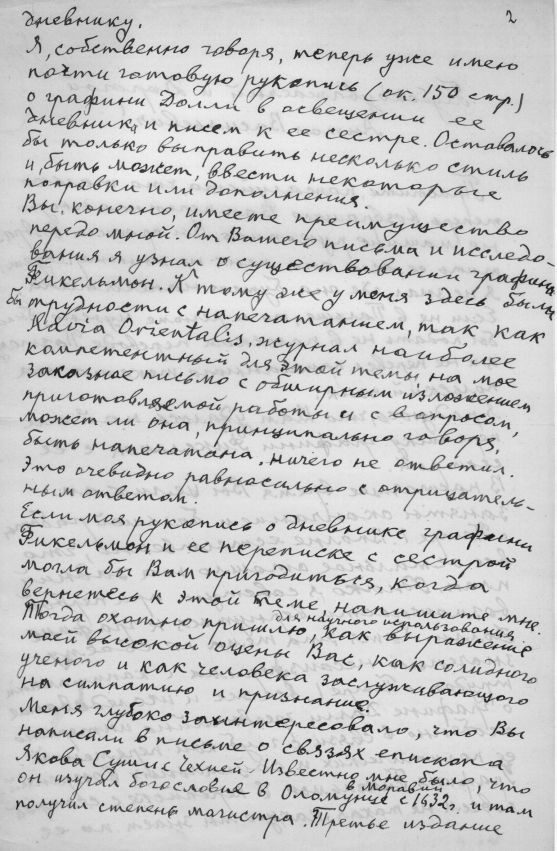 2
дневнику.
Я, собственно говоря, теперь уже имею
почти готовую рукопись (ок. 150 стр.)
о графини Долли в освещении ее
дневника и писем к ее сестре. Оставалось
бы только выправить несколько стиль
и, быть может, ввести некоторые
поправки или дополнения.
Вы, конечно, имеете преимущество
передо мной. От Вашего письма и исследо-
вания я узнал о существовании графини
Фикельмон. К тому же у меня здесь были
бы трудности с напечатанием, так как
Slavia Orientalis, журнал наиболее
компетентный для этой темы, на мое
заказное письмо с обширным изложением
приготовляемой работы и с вопросом,
может ли она, принципиально говоря,
быть напечатана, ничего не ответил.
Это очевидно равносильно с отрицатель-
ным ответом.
Если моя рукопись о дневнике графини
Фикельмон и ее переписке с сестрой
могла бы Вам пригодиться, когда
вернетесь к этой теме, напишите мне.
Тогда охотно пришлю для научного использования, как выражение
моей высокой оцены Вас, как солидного
ученого и как человека заслуживающого
на симпатию и признание.
Меня глубоко заинтересовало, что Вы
написали в письме о связях епископа
Якова Суши с Чехией. Известно мне было, что
он изучал богословие в Оломунце в Моравии с 1632 г. и там
получил степень магистра. Третье издание